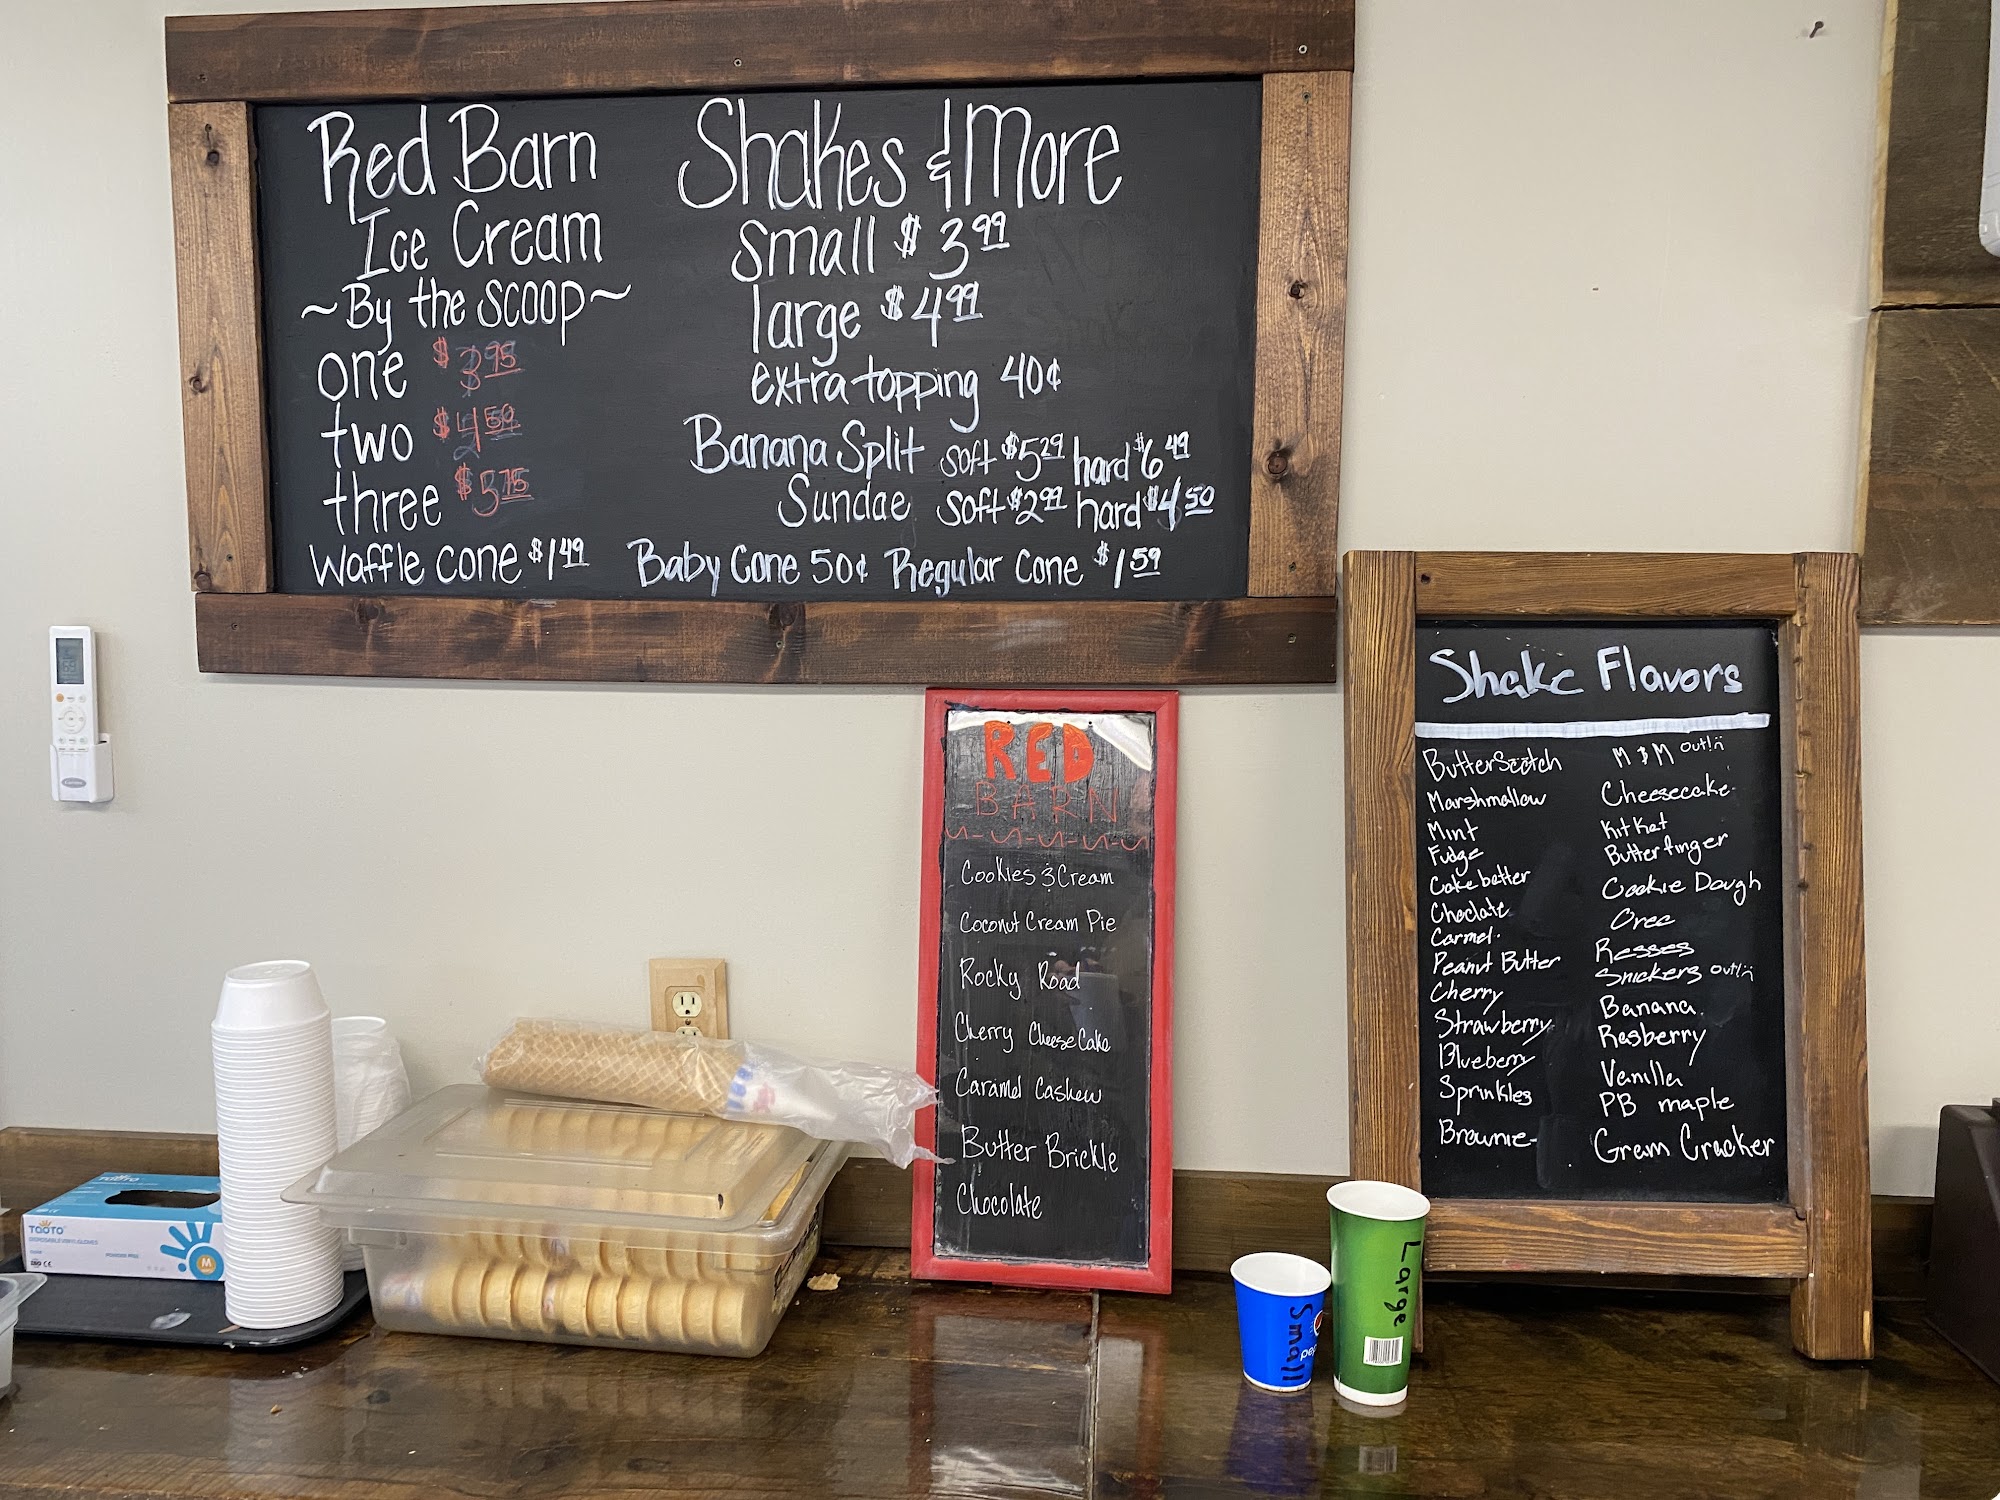 Red Barn
Ice Cream
~By the scoop~
one $3.95
two $4.59
three $5.75
Waffle cone $1.49
Shakes & More
small $3.99
large $4.99
extra topping 40¢
Banana Split soft $5.29 hard $6.49
Sundae soft $2.99 hard $4.50
Baby Cone 50¢ Regular Cone $1.59
RED
BARN
Cookies & Cream
Coconut Cream Pie
Rocky Road
Cherry CheeseCake
Caramel Cashew
Butter Brickle
Chocolate
Shake Flavors
ButterScotch
Marshmallow
Mint
Fudge
Cake batter
Choclate
Carmel
Peanut Butter
Cherry
Strawberry
Blueberry
Sprinkles
Brownie
M & M out!
Cheesecake
Kit Kat
Butterfinger
Cookie Dough
Oreo
Resses
Snickers out!
Banana
Rasberry
Vanilla
PB maple
Gram Cracker
Small
Large
TAOTO
DISPOSABLE VINYL GLOVES
POWDER FREE
ISO CE
M